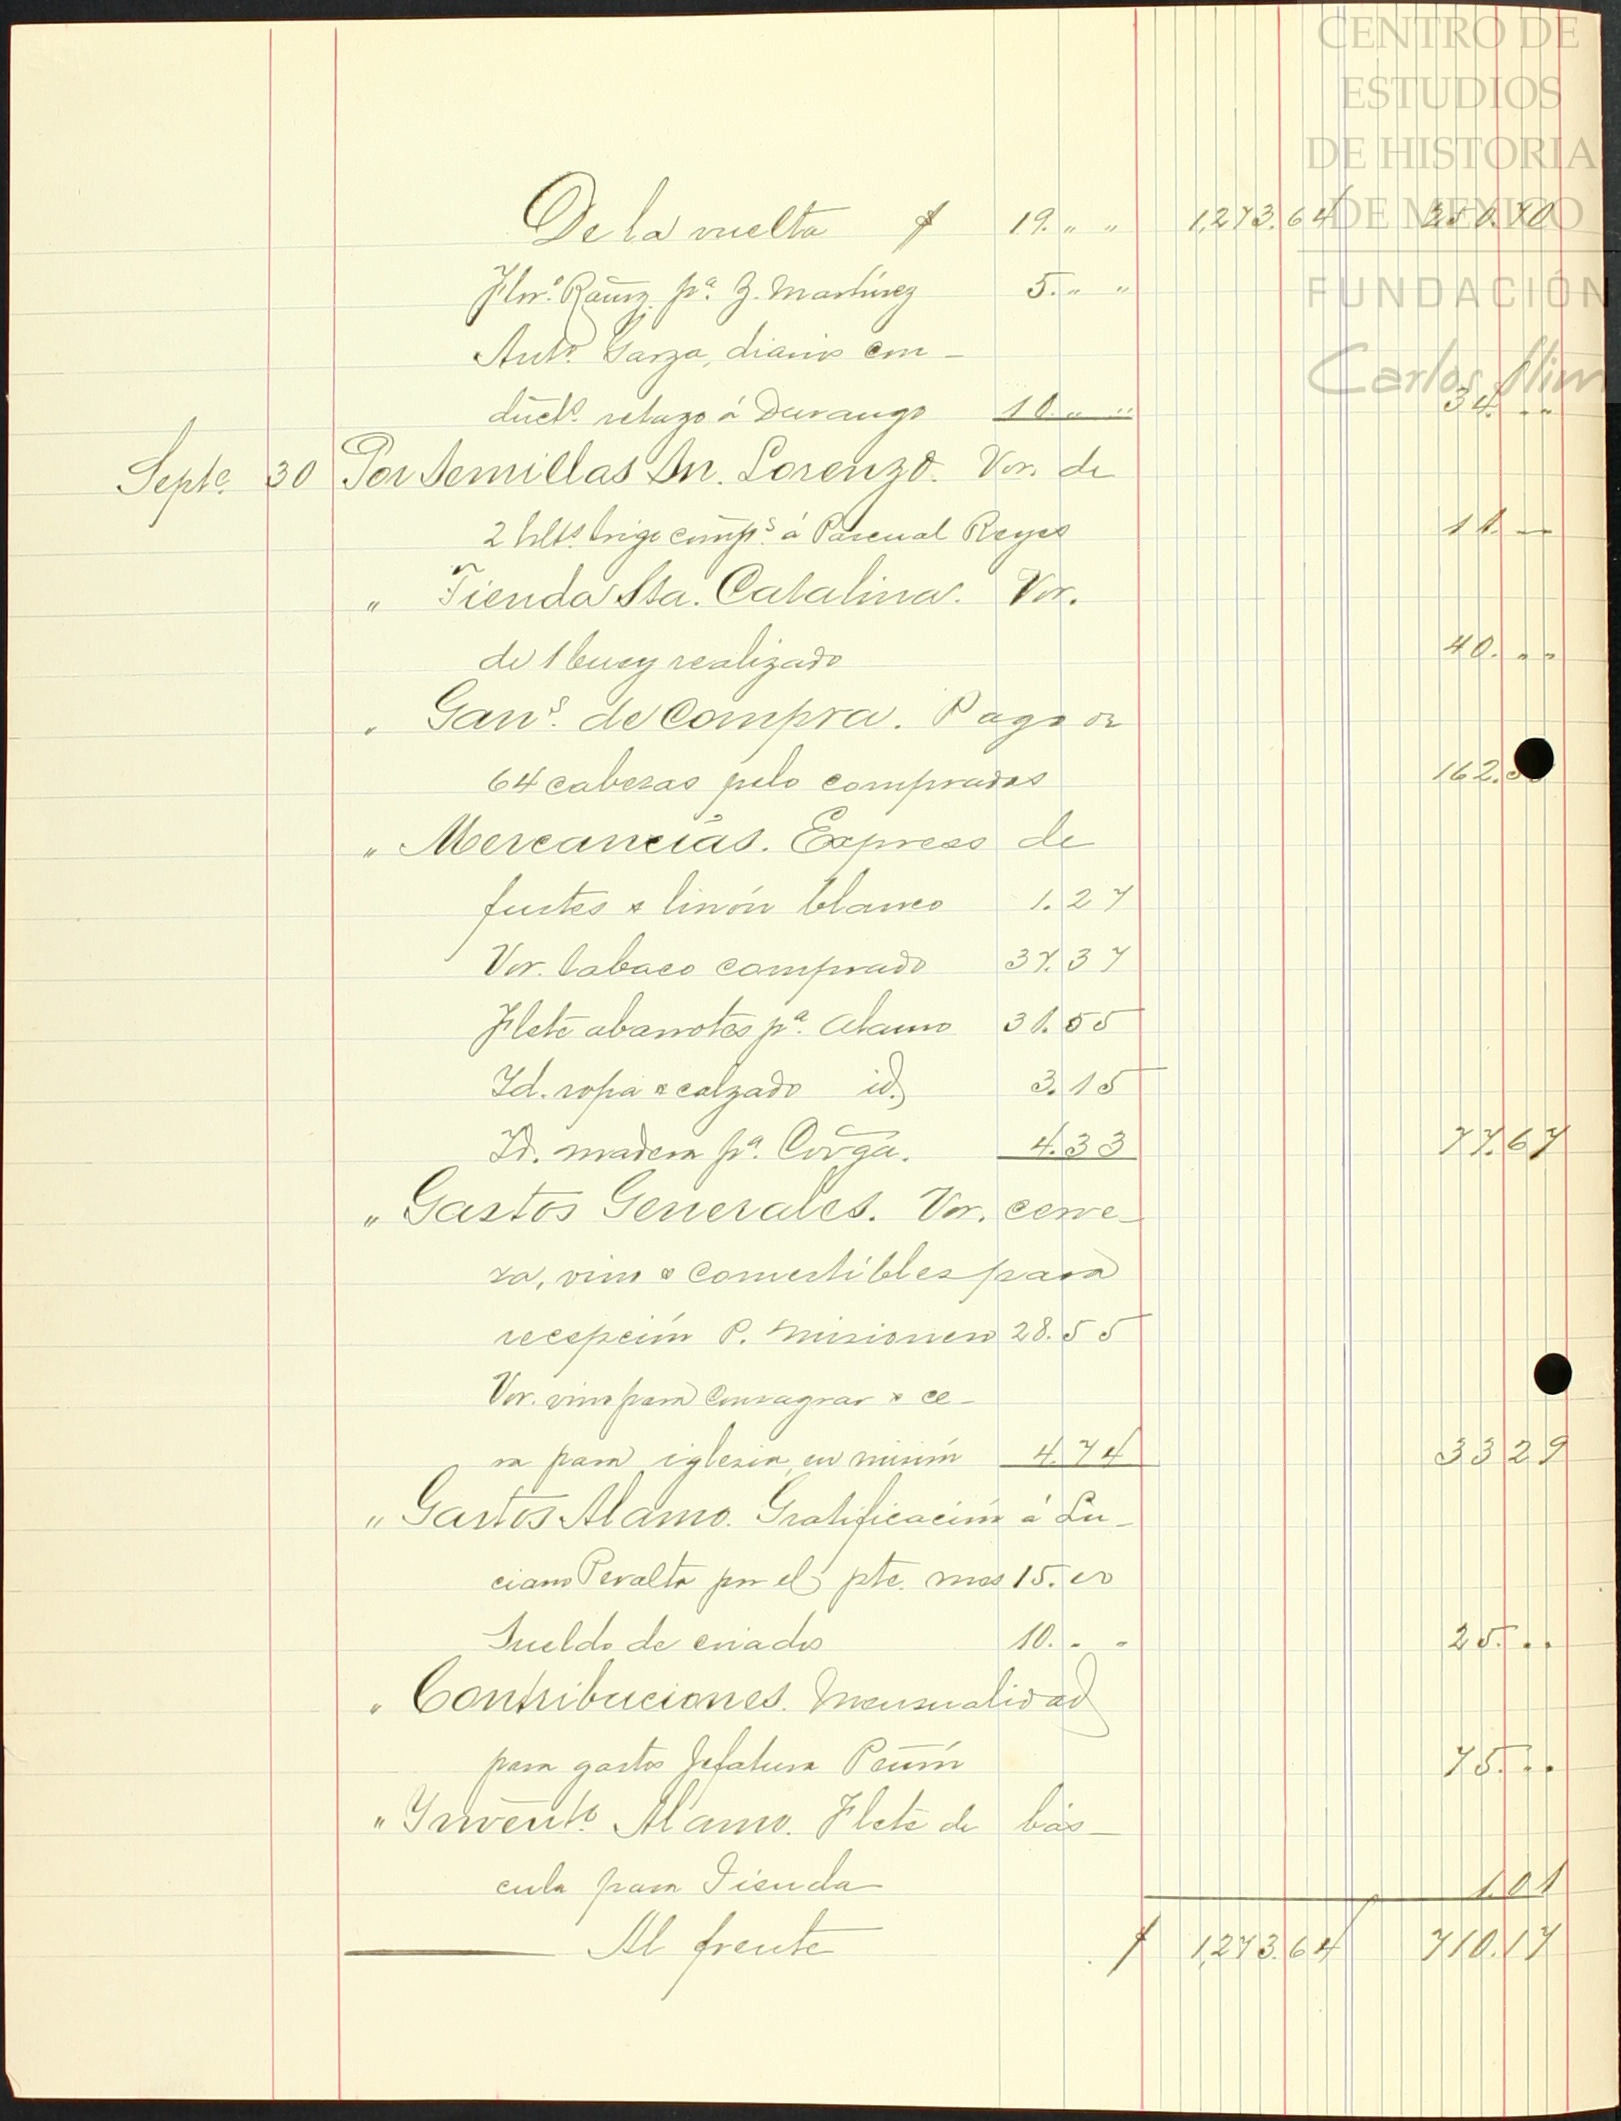 CENTRO DE
ESTUDIOS
DE HISTORIA
DE MEXICO
FUNDACIÓN
Carlos Slim
De la vuelta $ 19. " " 1,273.64 250.70
Flor.º Ramz. pª. Z. Martínez 5. " "
Antº. Garza, diario con-
ductº. retazo á Durango 10. " " 34. " "
Septe. 30 Por Semillas Sn. Lorenzo. Vor. de
2 hlts. trigo comps. á Pascual Reyes 11. —
" Tienda Sta. Catalina. Vor.
de 1 buey realizado 40. " "
" Gans. de Compra. Pago de
64 cabezas pelo compradas 162.
" Mercancías. Express de
fustes & linón blanco 1.27
Vor. tabaco comprado 37.37
Flete abarrotes pª. Alamo 31.55
Id. ropa & calzado id. 3.15
Id. madera pª. 4.33 77.67
" Gastos Generales. Vor. cerve-
za, vino & comestibles para
recepción P. Misionero 28.55
Vor. vino para consagrar & ce-
ra para iglesia, en misión 4.74 33.29
" Gastos Alamo. Gratificación á Lu-
ciano Peralta por el pte. mes 15. 00
Sueldo de criados 10. " " 25. " "
" Contribuciones. Mensualidad
para gastos Jefatura Peñón 75. " "
" Inventº. Alamo. Flete de bás-
cula para Tienda 1.01
Al frente $ 1,273.64 710.17